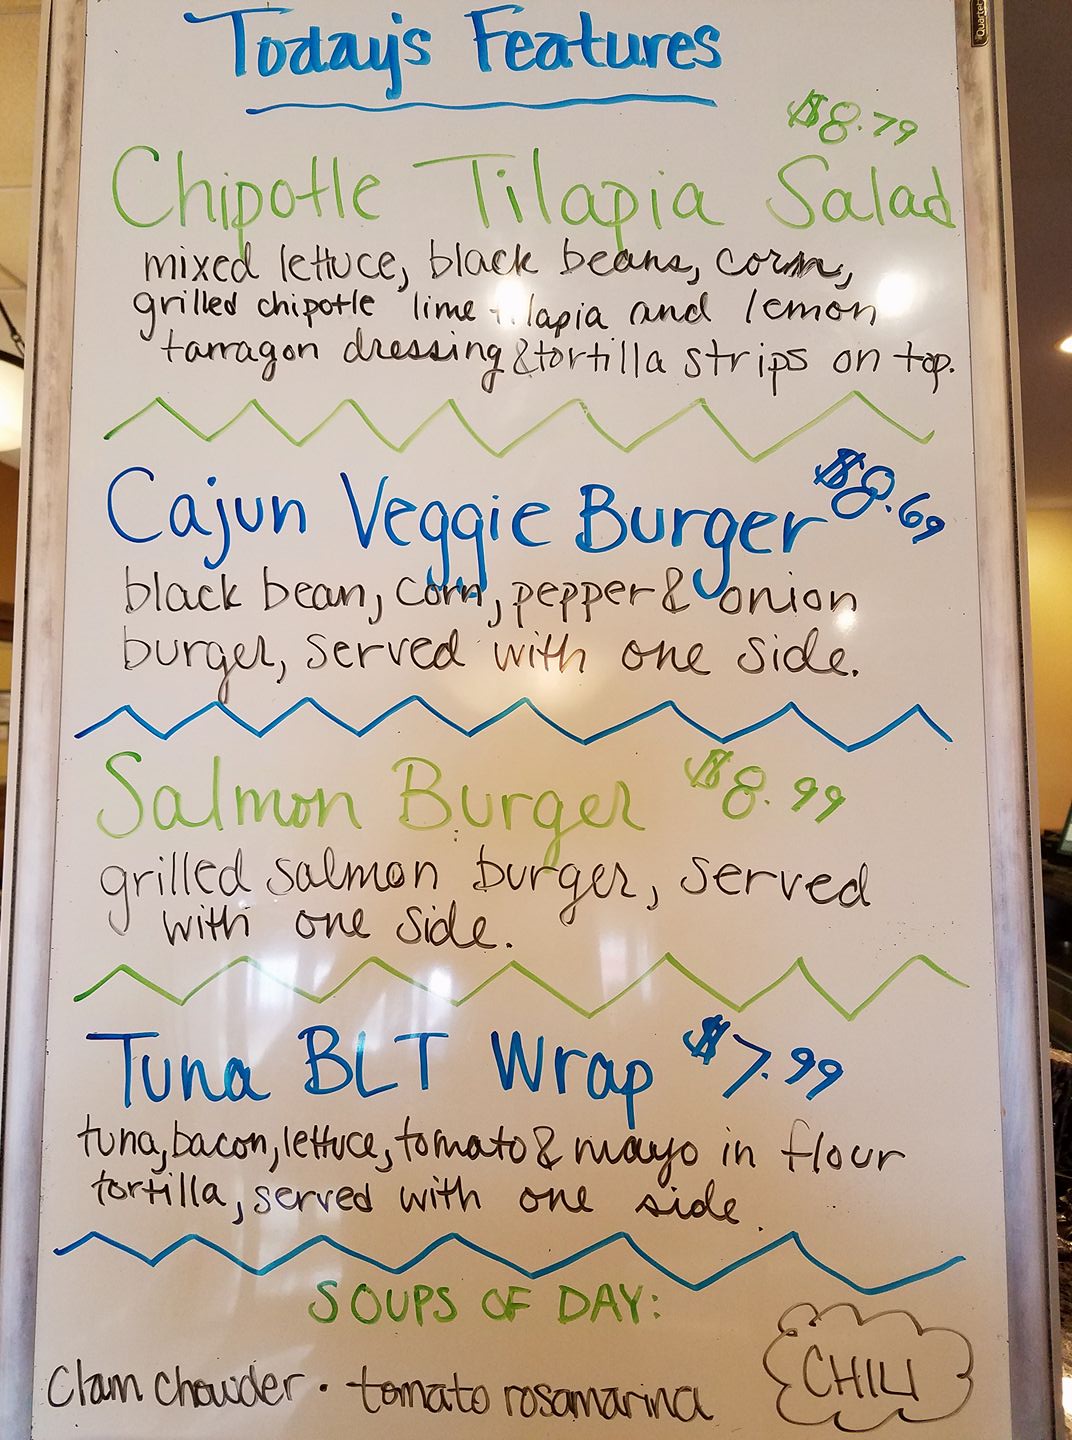 Today's Features
$8.79
Chipotle Tilapia Salad
mixed lettuce, black beans, corn,
grilled chipotle lime tilapia and lemon
tarragon dressing & tortilla strips on top.
Cajun Veggie Burger $8.69
black bean, corn, pepper & onion
burger, served with one side.
Salmon Burger $8.99
grilled salmon burger, served
with one side.
Tuna BLT Wrap $7.99
tuna, bacon, lettuce, tomato & mayo in flour
tortilla, served with one side.
SOUPS OF DAY:
Clam chowder · tomato rosamarina
CHILI
Quartet